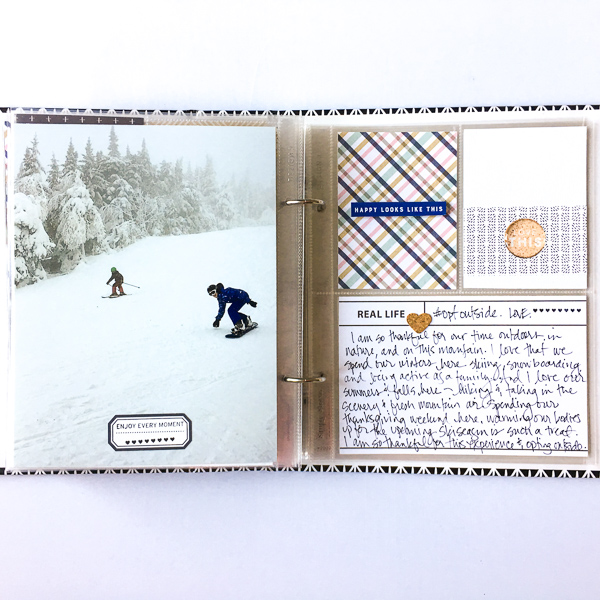 ENJOY EVERY MOMENT
HAPPY LOOKS LIKE THIS
LOVE
THIS
REAL LIFE
#optoutside. LOVE.
I am so thankful for our time outdoors, in
nature, and on this mountain. I love that we
spend our winters here skiing, snowboarding
and being active as a family. And I love our
summers & falls here - hiking & taking in the
scenery & fresh mountain air. Spending our
thanksgiving weekend here, warming our bodies
up to the upcoming ski season is such a treat.
I am so thankful for this experience & opting outside.